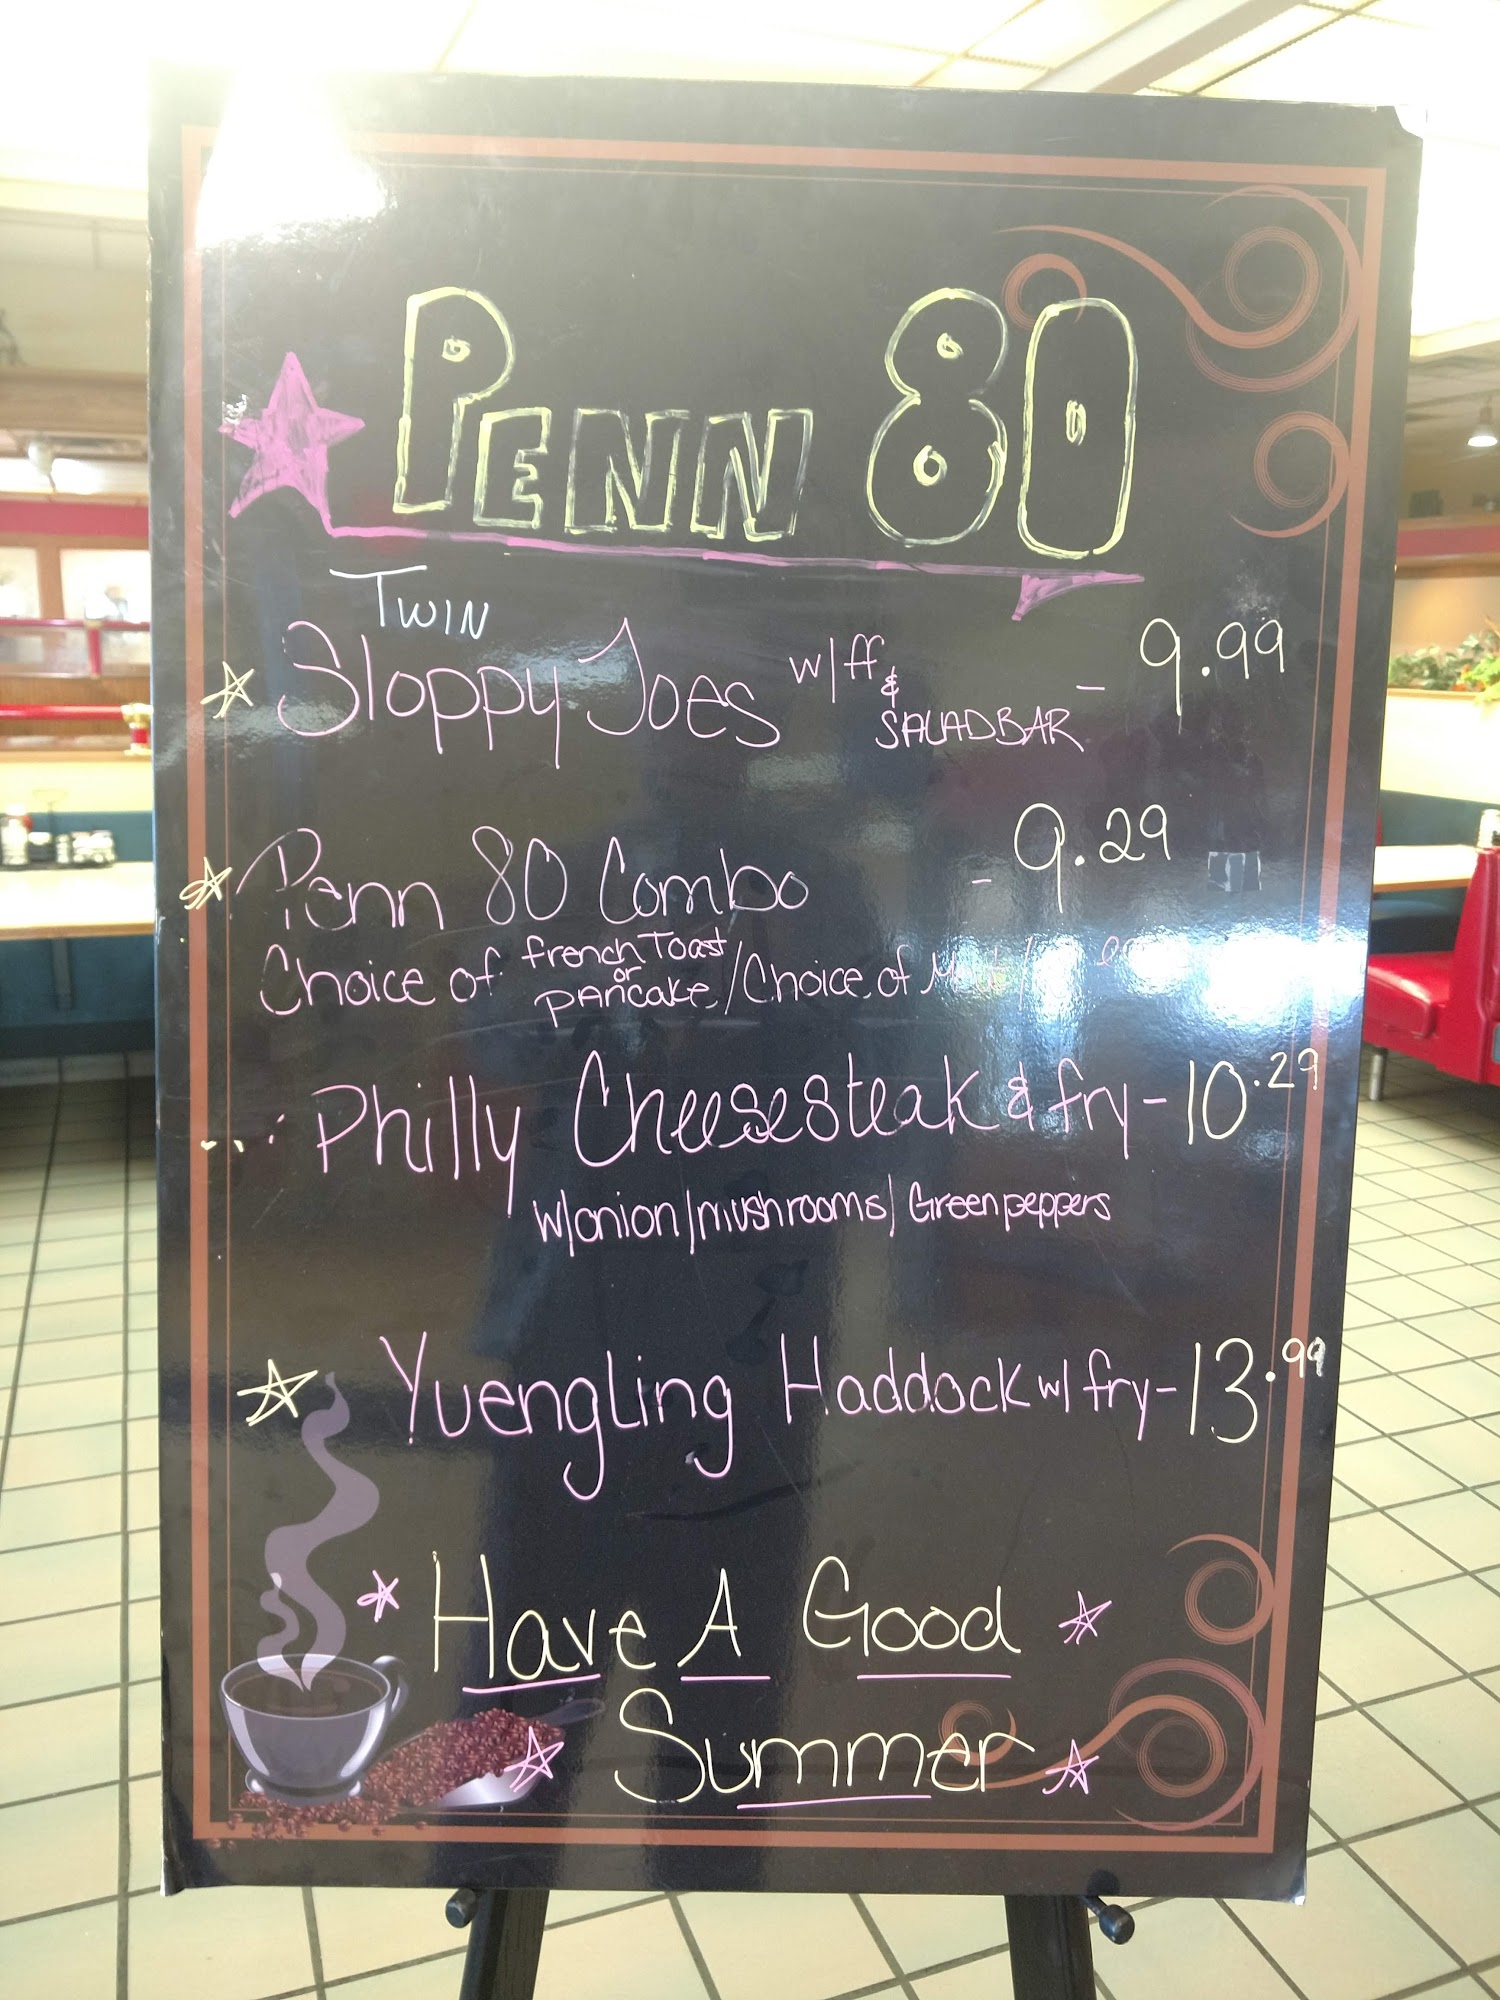 PENN 80
TWIN
Sloppy Joes w/ff & SALADBAR - 9.99
Penn 80 Combo - 9.29
Choice of french Toast or pancake / Choice of
Philly Cheesesteak & fry - 10.29
w/onion/mushrooms/Green peppers
Yuengling Haddock w/ fry - 13.99
Have A Good
Summer